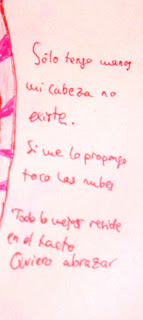 Sólo tengo manos
mi cabeza no
existe.
Si me lo propongo
toco las nubes
Todo lo mejor reside
en el tacto
Quiero abrazar